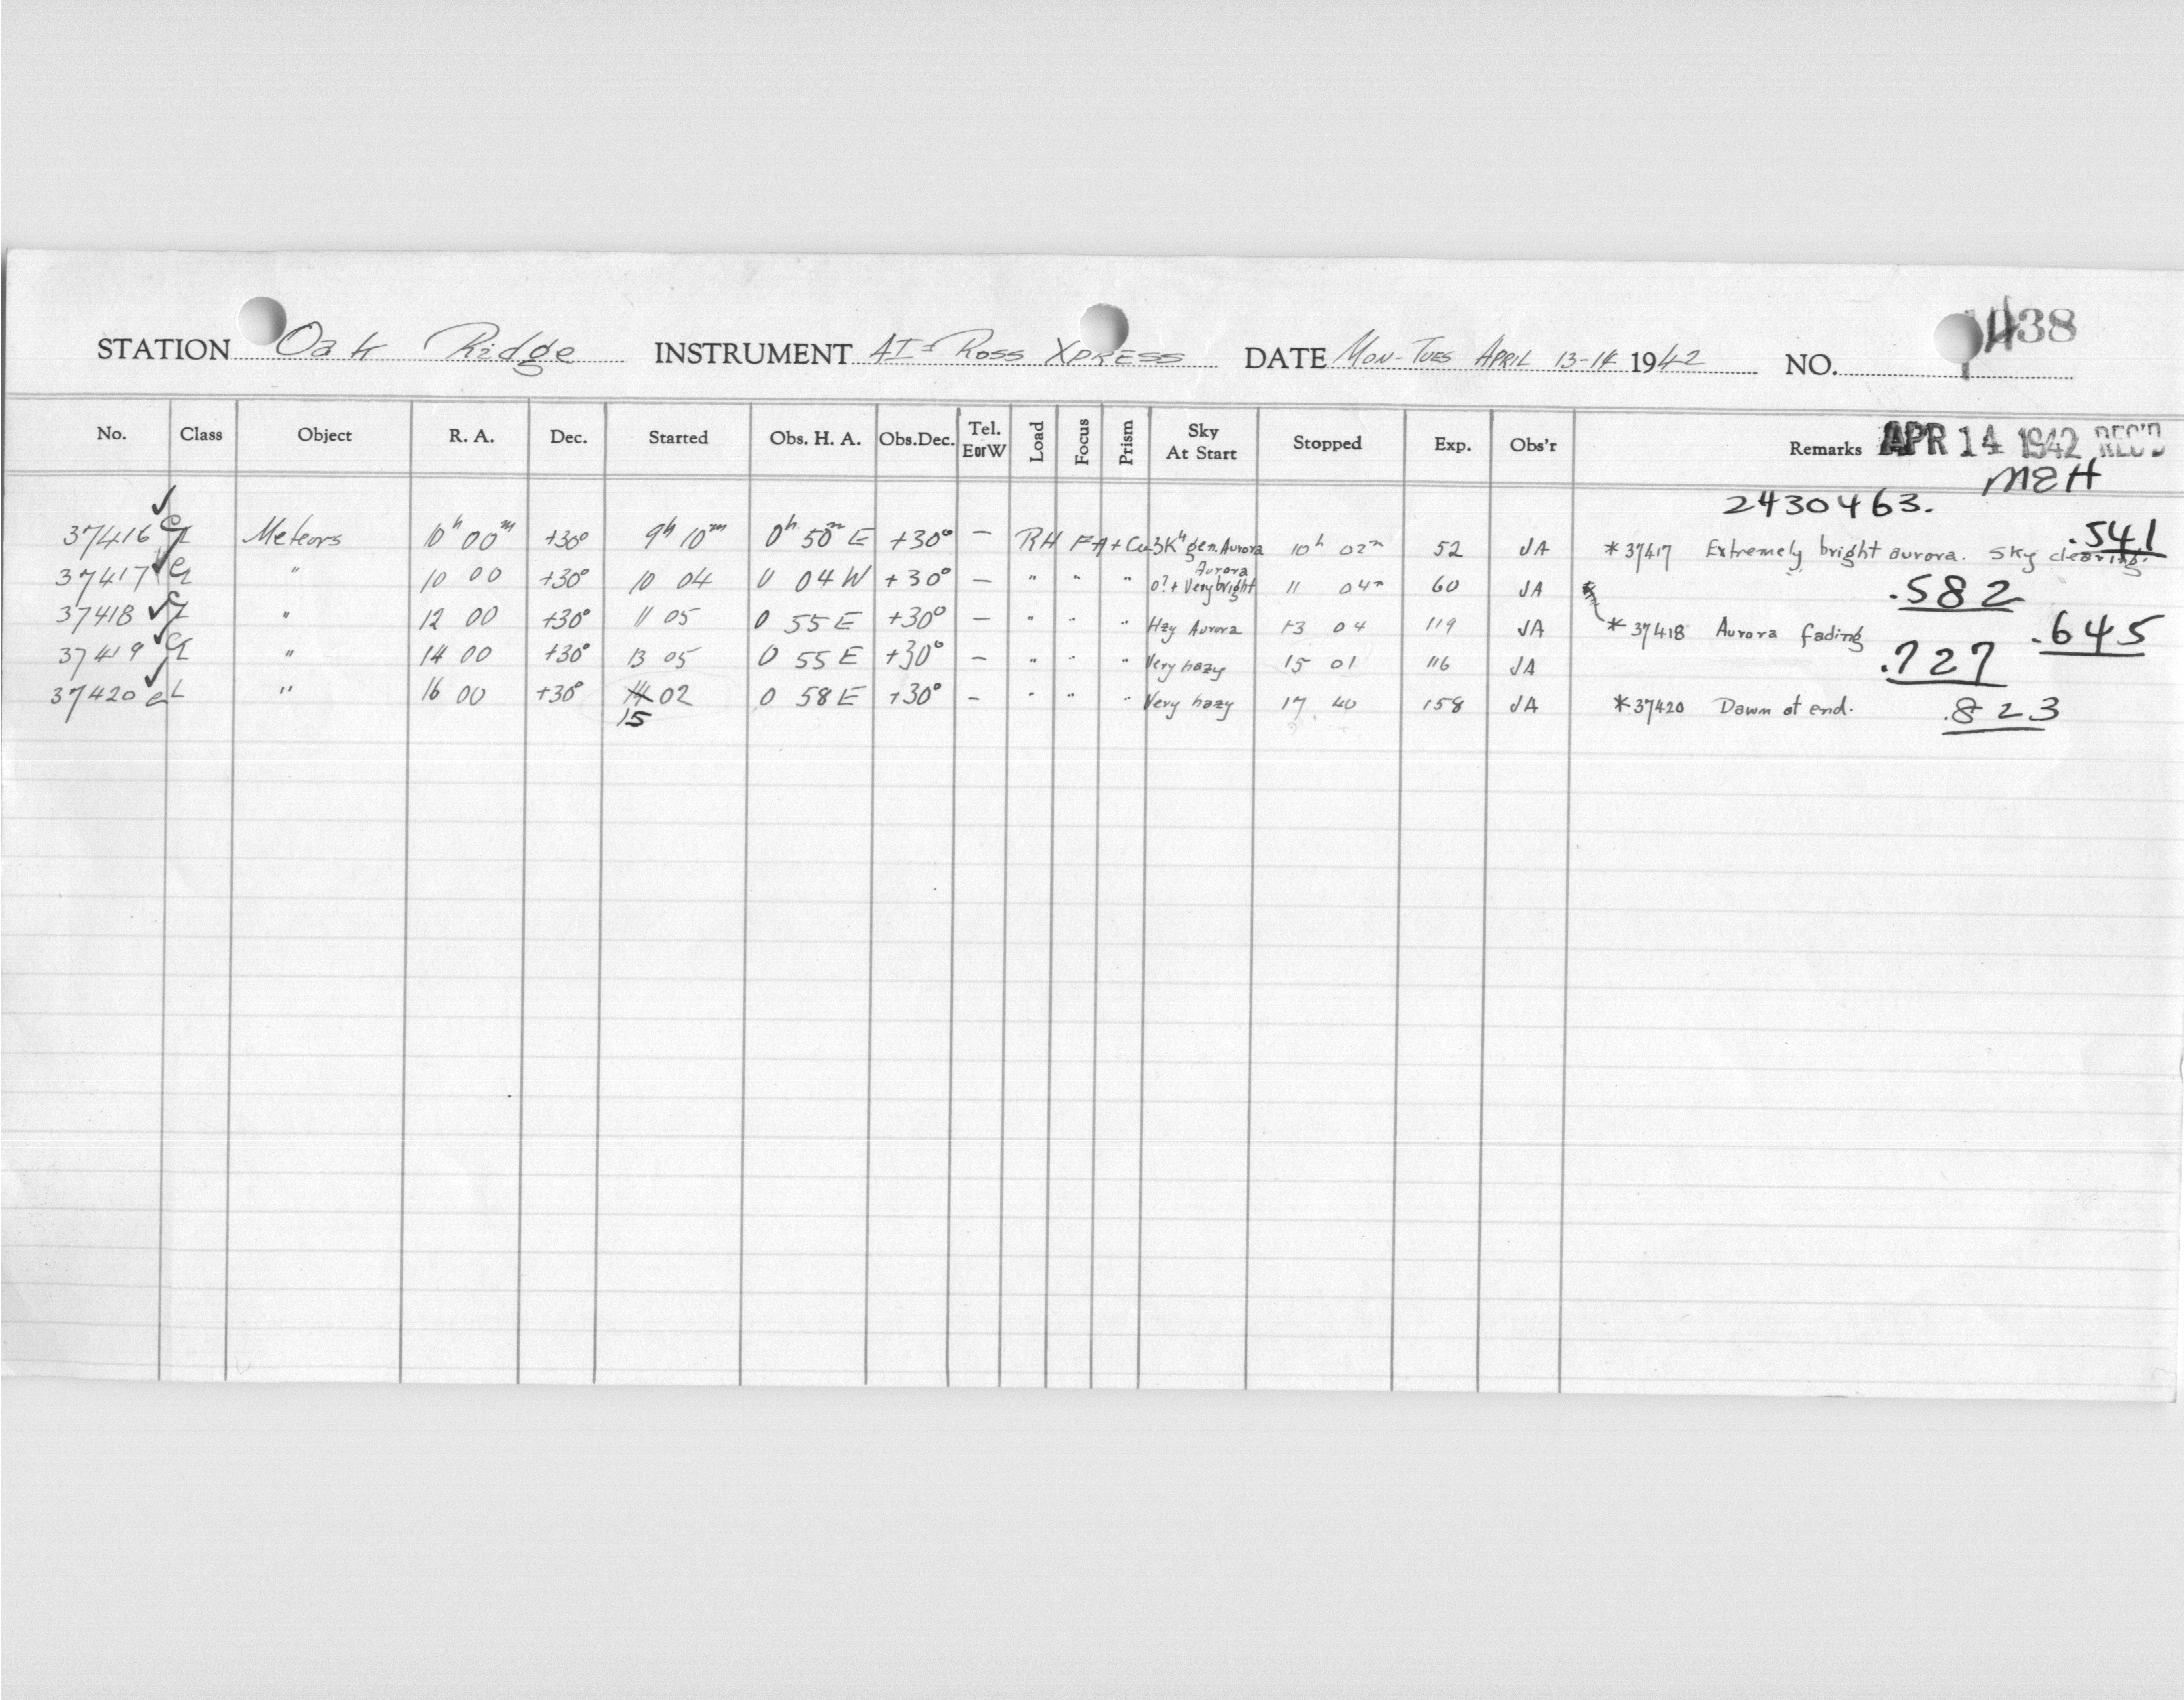 1138
STATION Oak Ridge INSTRUMENT AI-Ross XPRESS DATE MON-TUES APRIL 13-14 1942 NO.
No. Class Object R. A. Dec. Started Obs. H. A. Obs.Dec. Tel. E or W Load Focus Prism Sky At Start Stopped Exp. Obs'r Remarks APR 14 1942 REC'D
MEH
2430463.
37416 Meteors 10h 00m +30° 9h 10m 0h 50m E +30° — RH FA + Cu 3Kn gen. Aurora 10h 02m 52 JA * 37417 Extremely bright aurora. Sky clearing. .541
37417 " 10 00 +30° 10 04 0 04 W +30° — " " " 0?+ Aurora Very bright 11 04m 60 JA .582
37418 " 12 00 +30° 11 05 0 55 E +30° — " " " Hzy Aurora 13 04 119 JA * 37418 Aurora fading .645
37419 " 14 00 +30° 13 05 0 55 E +30° — " " " Very hazy 15 01 116 JA .727
37420 " 16 00 +30° 14 02 0 58 E +30° — " " " Very hazy 17 40 158 JA * 37420 Dawn at end. .823
15